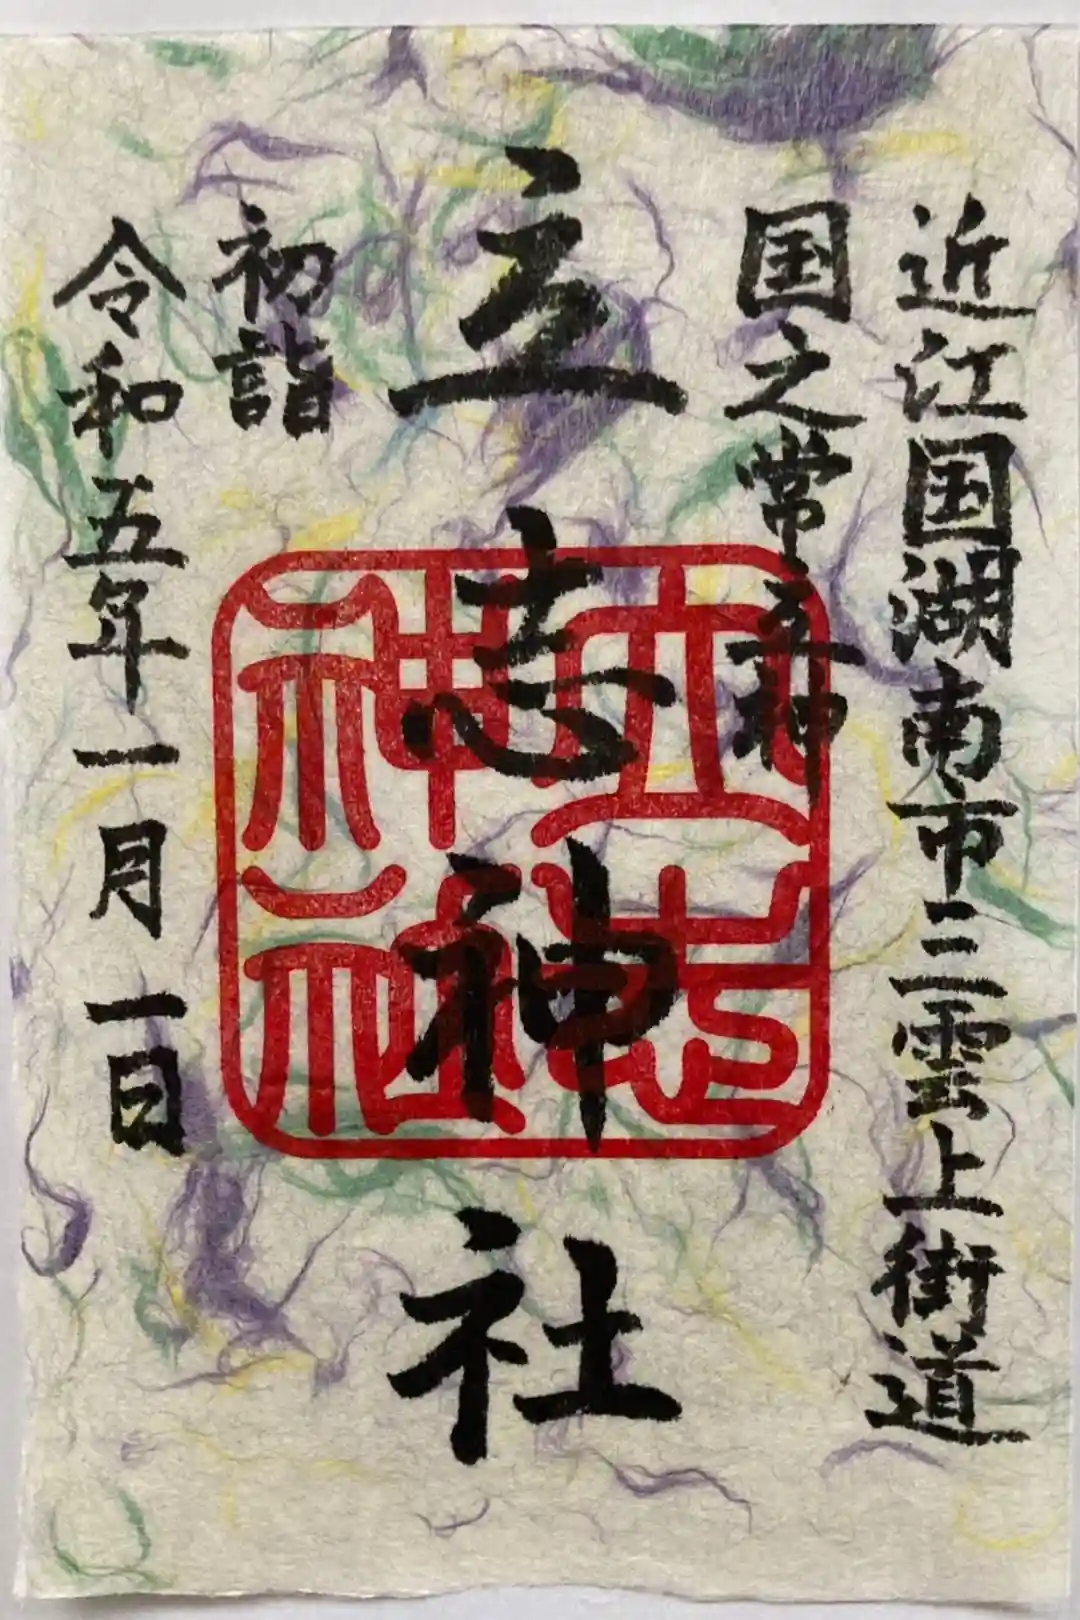 近江国湖南市三雲上街道
国之常立神
立志神社
初詣
令和五年一月一日
立志神社